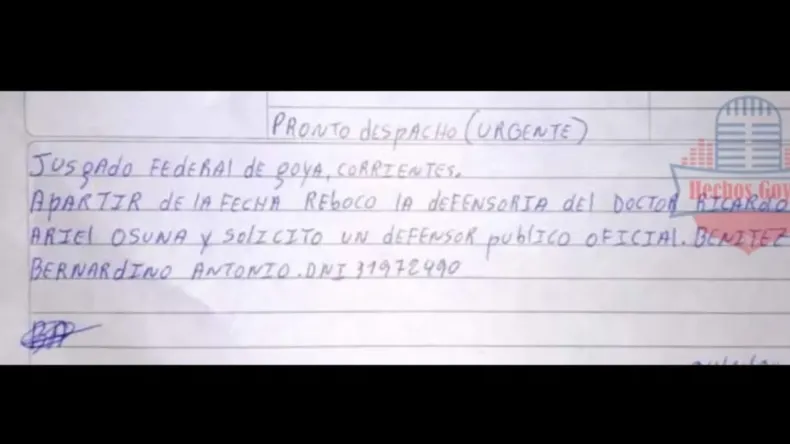 PRONTO dESPACHO (URGENTE)
JUSGADO FEDERAl dE gOYA, CORRIENTES.
APARTIR dE lA FECHA REbOCO lA dEFENSORIA dEl DOCTOR RICARdO
ARIEl OSUNA y SOlICITO UN dEFENSOR publICO OFICIAl. BENITEZ
BERNARdINO ANTONIO. DNI 31972490
Hechos.Goy